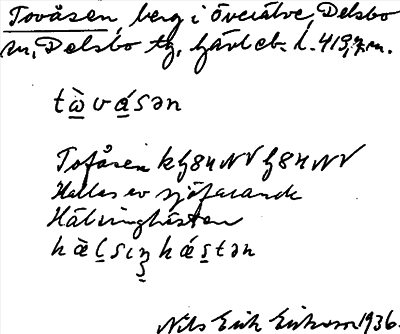 Tovåsen, berg i överälve, Delsbo
sn, Delsbo tg, Gävleb. l. 419,7 m.
tὼvása̱n
Tofåsen k G84NV G84NV
Kallas av sjöfarande
Hälsinghästen
hæ̀lsiŋhǽstən
Nils Erik Eriksson 1936.